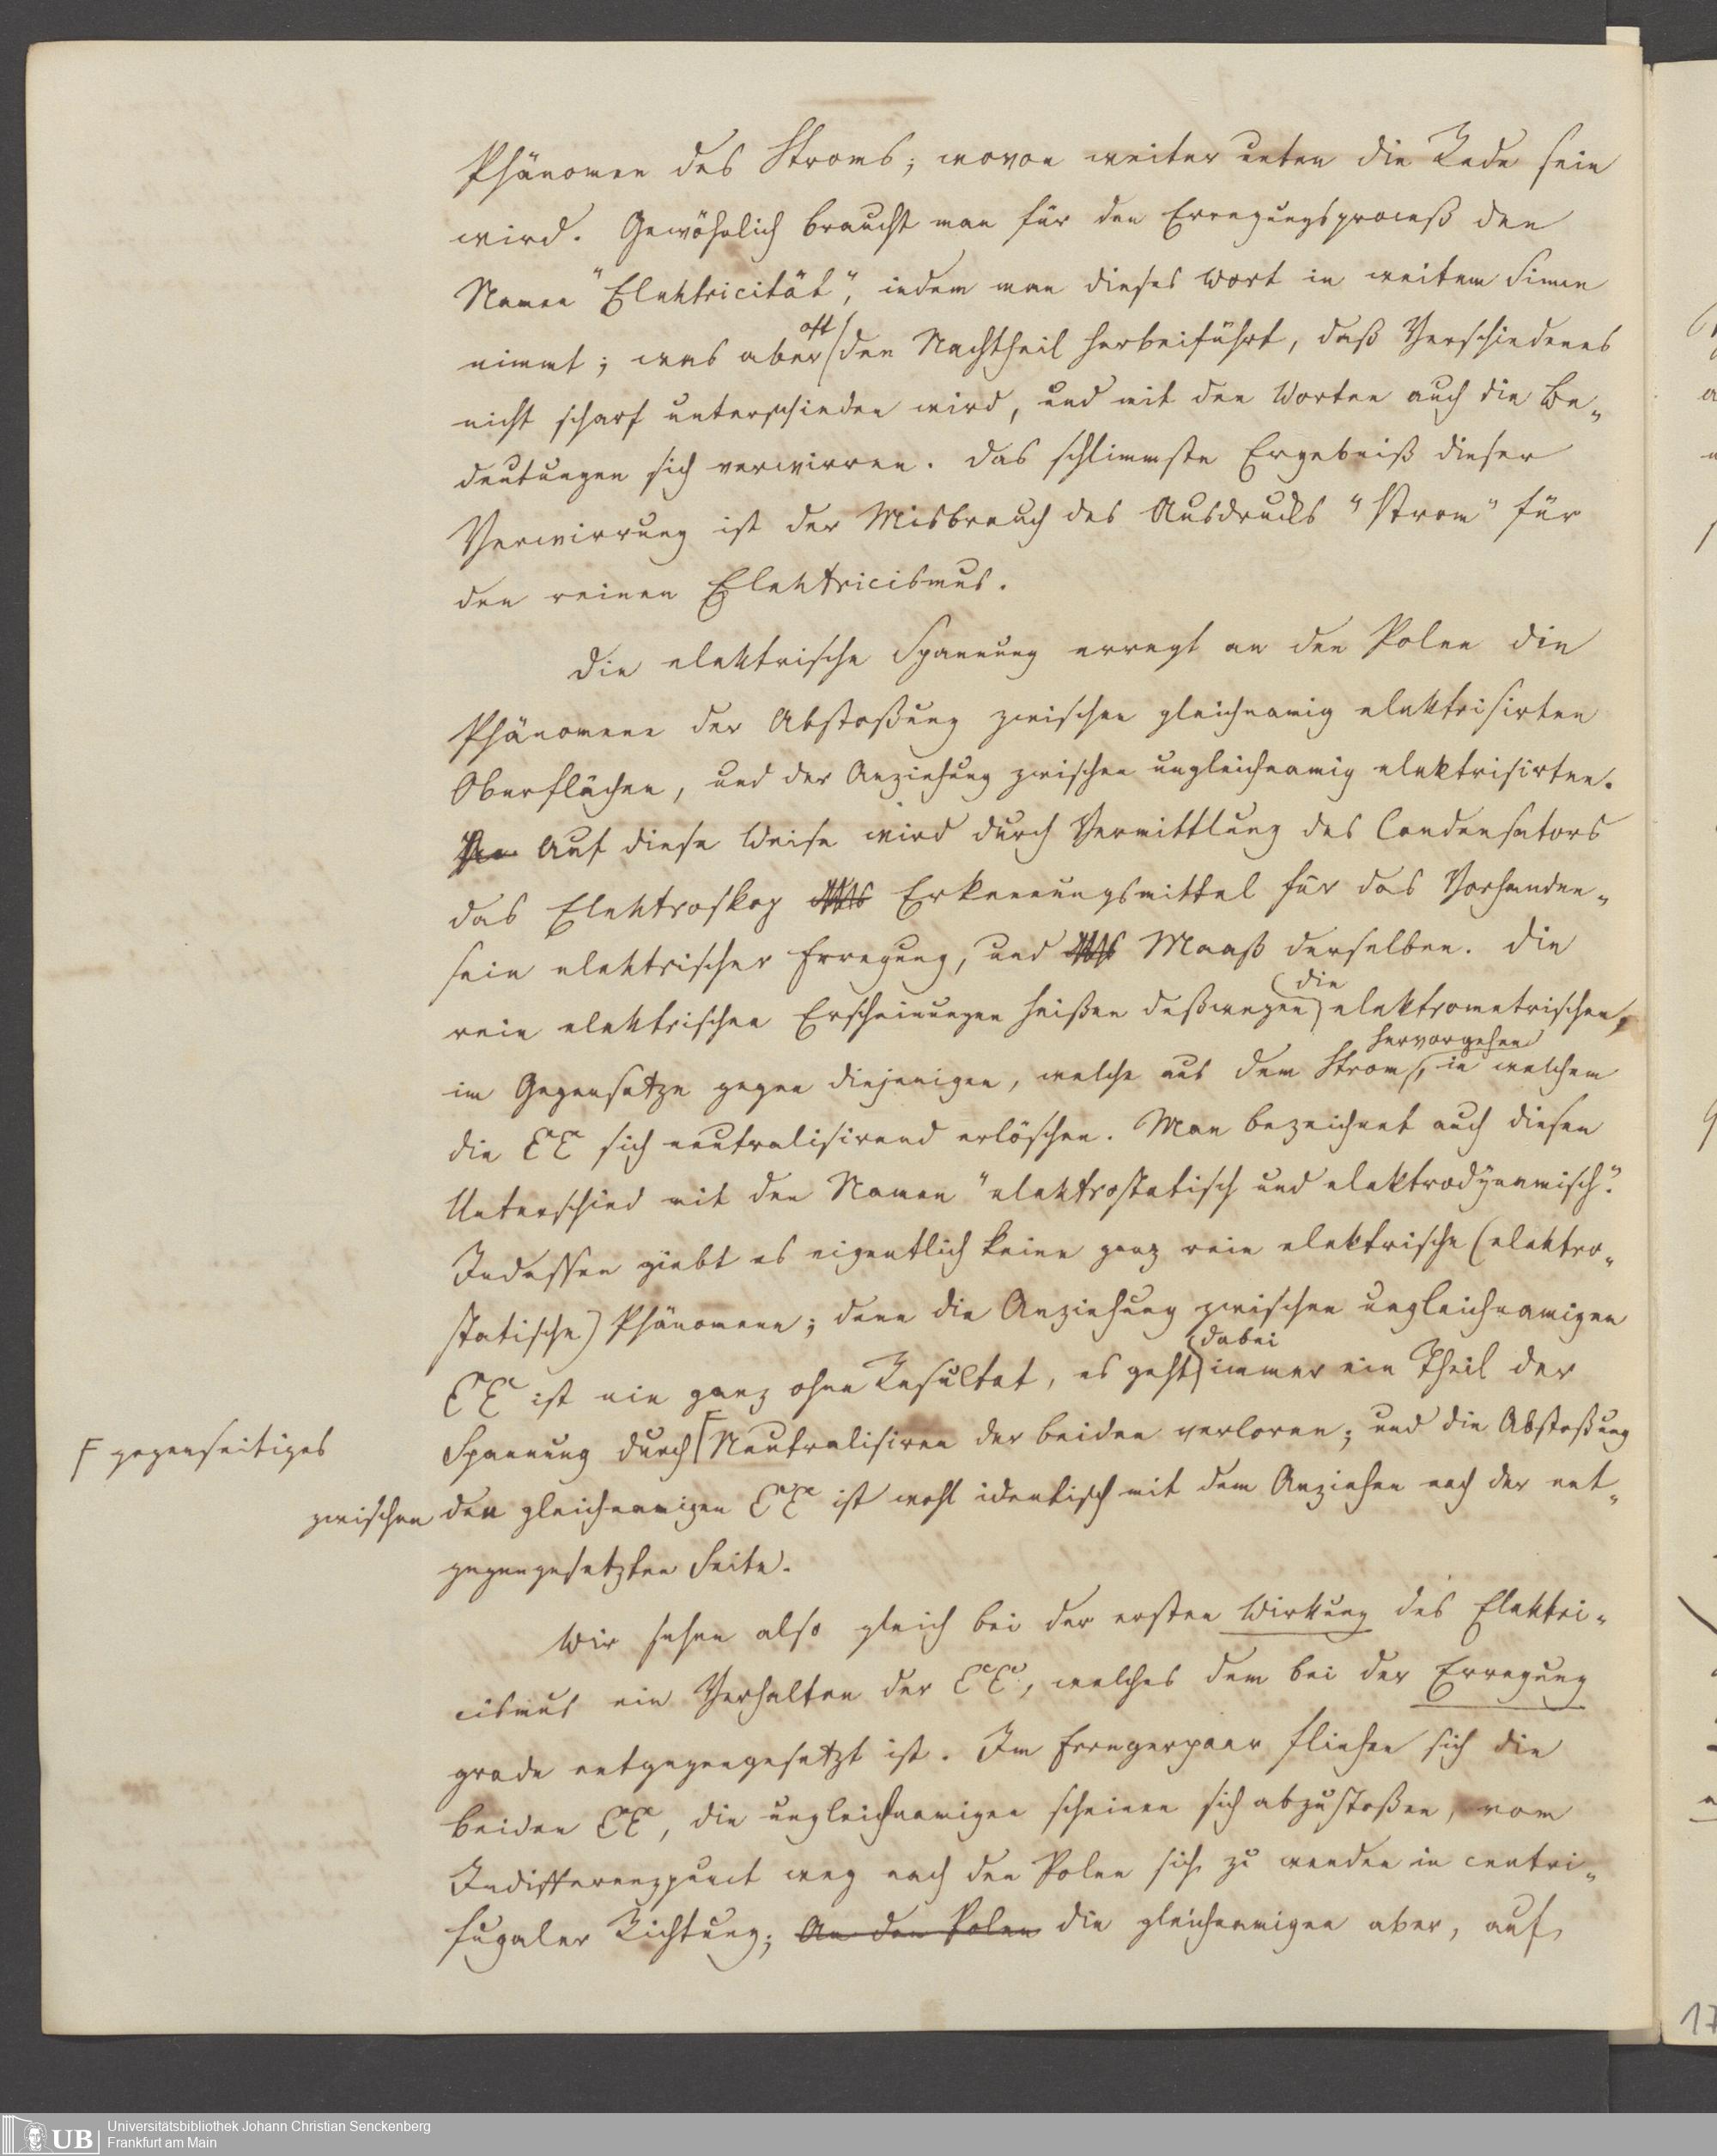 Phänomen des Stroms; wovon weiter unten die Rede sein
wird. Gewöhnlich braucht man für den Erregungsproceß den
Namen "Elektricität", indem man dieses Wort in weitem Sinne
nimmt; was aber oft den Nachtheil herbeiführt, daß Verschiedenes
nicht scharf unterschieden wird, und mit den Worten auch die Be-
deutungen sich verwirren. Das schlimmste Ergebniß dieser
Verwirrung ist der Misbrauch des Ausdrucks "Strom" für
den reinen Elektricismus.
Die elektrische Spannung erregt an den Polen die
Phänomene der Abstoßung zwischen gleichnamig elektrisirten
Oberflächen, und der Anziehung zwischen ungleichnamig elektrisirten.
Auf diese Weise wird durch Vermittlung des Condensators
das Elektroskop Erkennungsmittel für das Vorhanden-
sein elektrischer Erregung, und Maaß derselben. Die
rein elektrischen Erscheinungen heißen deßwegen die elektrometrischen,
im Gegensatze gegen diejenigen, welche aus dem Strom hervorgehen, in welchem
die EE sich neutralisirend erlöschen. Man bezeichnet auch diesen
Unterschied mit den Namen "elektrostatisch und elektrodynamisch".
Indessen giebt es eigentlich keine ganz rein elektrische (elektro-
statische) Phänomene; denn die Anziehung zwischen ungleichnamigen
EE ist nie ganz ohne Resultat, es geht dabei immer ein Theil der
Spannung durch F Neutralisiren der beiden verloren; und die Abstoßung
F gegenseitiges
zwischen den gleichnamigen EE ist wohl identisch mit dem Anziehen nach der ent-
gegengesetzten Seite.
Wir sehen also gleich bei der ersten Wirkung des Elektri-
cismus ein Verhalten der EE, welches dem bei der Erregung
grade entgegengesetzt ist. Im Erregerpaar fliehen sich die
beiden EE, die ungleichnamigen scheinen sich abzustoßen, vom
Indifferenzpunct weg nach den Polen sich zu wenden in centri-
fugaler Richtung; An den Polen die gleichnamigen aber, auf
17
UB Universitätsbibliothek Johann Christian Senckenberg
Frankfurt am Main